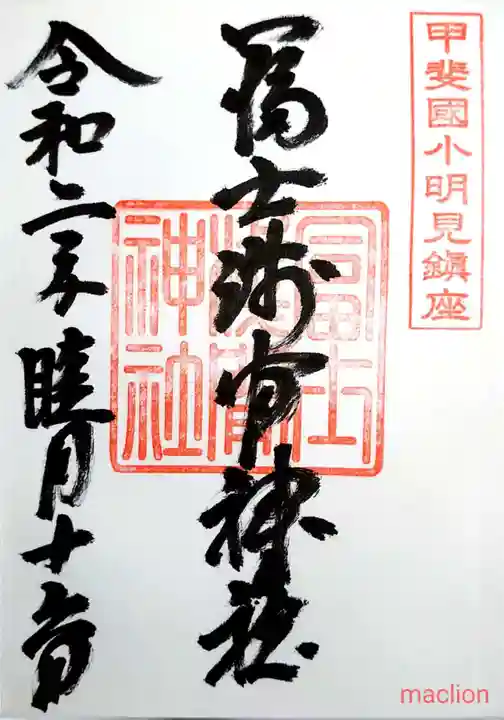 甲斐國小明見鎮座
冨士浅間神社
冨士浅間神社
令和二年睦月十六日
maclion